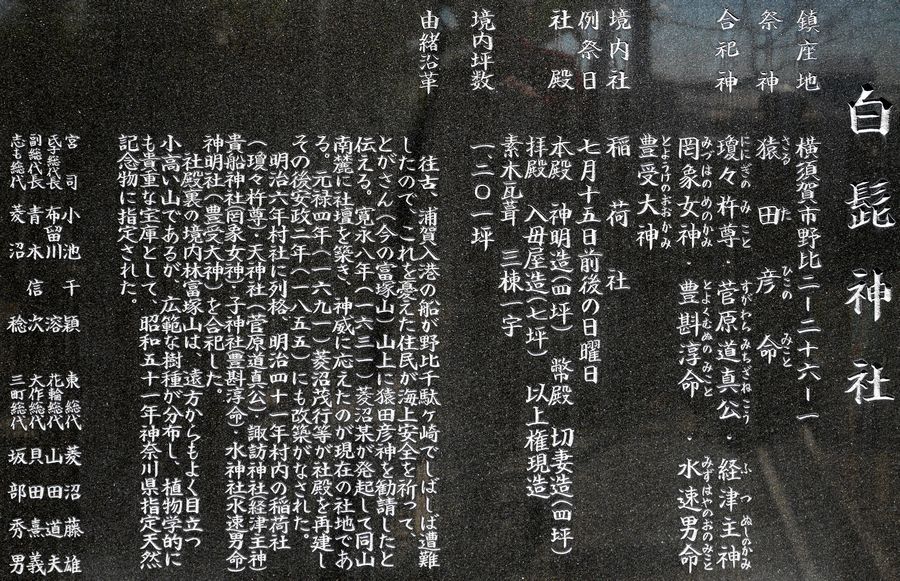 白髭神社
鎮座地　横須賀市野比二ー二十六ー一
祭神　猿田彦命
さるたひこのみこと
合祀神　瓊々杵尊・菅原道真公・経津主神
ににぎのみこと　すがわらみちざねこう　ふつぬしのかみ
罔象女神・豊斟渟命・水速男命
みづはのめのかみ　とよくむぬのみこと　みずはやのおのみこと
豊受大神
とようけのおおかみ
境内社　稲荷社
例祭日　七月十五日前後の日曜日
社殿　本殿　神明造(四坪)　幣殿　切妻造(四坪)
拝殿　入母屋造(七坪)　以上権現造
素木瓦葺　三棟一宇
境内坪数　一、二〇一坪
由緒沿革
往古、浦賀入港の船が野比千駄ヶ崎でしばしば遭難
したので、これを憂えた住民が海上安全を祈って、
とがさん(今の富塚山)山上に猿田彦神を勧請したと
伝える。寛永八年(一六三一)菱沼某が発起して同山
南麓に社壇を築き、神威に応えたのが現在の社地であ
る。元禄四年(一六九一)菱沼茂行等が社殿を再建し
その後安政二年(一八五五)にも改築がなされた。
明治六年村社に列格、明治四十一年村内の稲荷社
(瓊々杵尊)天神社(菅原道真公)諏訪神社(経津主神)
貴船神社(罔象女神)・子神社(豊斟渟命)・水神社(水速男命)
神明社(豊受大神)を合祀した。
社殿裏の境内林富塚山は、遠方からもよく目立つ
小高い山であるが、広範な樹種が分布し、植物学的に
も貴重な宝庫として、昭和五十一年神奈川県指定天然
記念物に指定された。
宮司　小池千穎　東総代　菱沼藤雄
氏子総代長　布留川溶　花輪総代　山田道夫
副総代長　青木信次　大作総代　貝田熹義
志も総代　菱沼稔　三町総代　坂部秀男